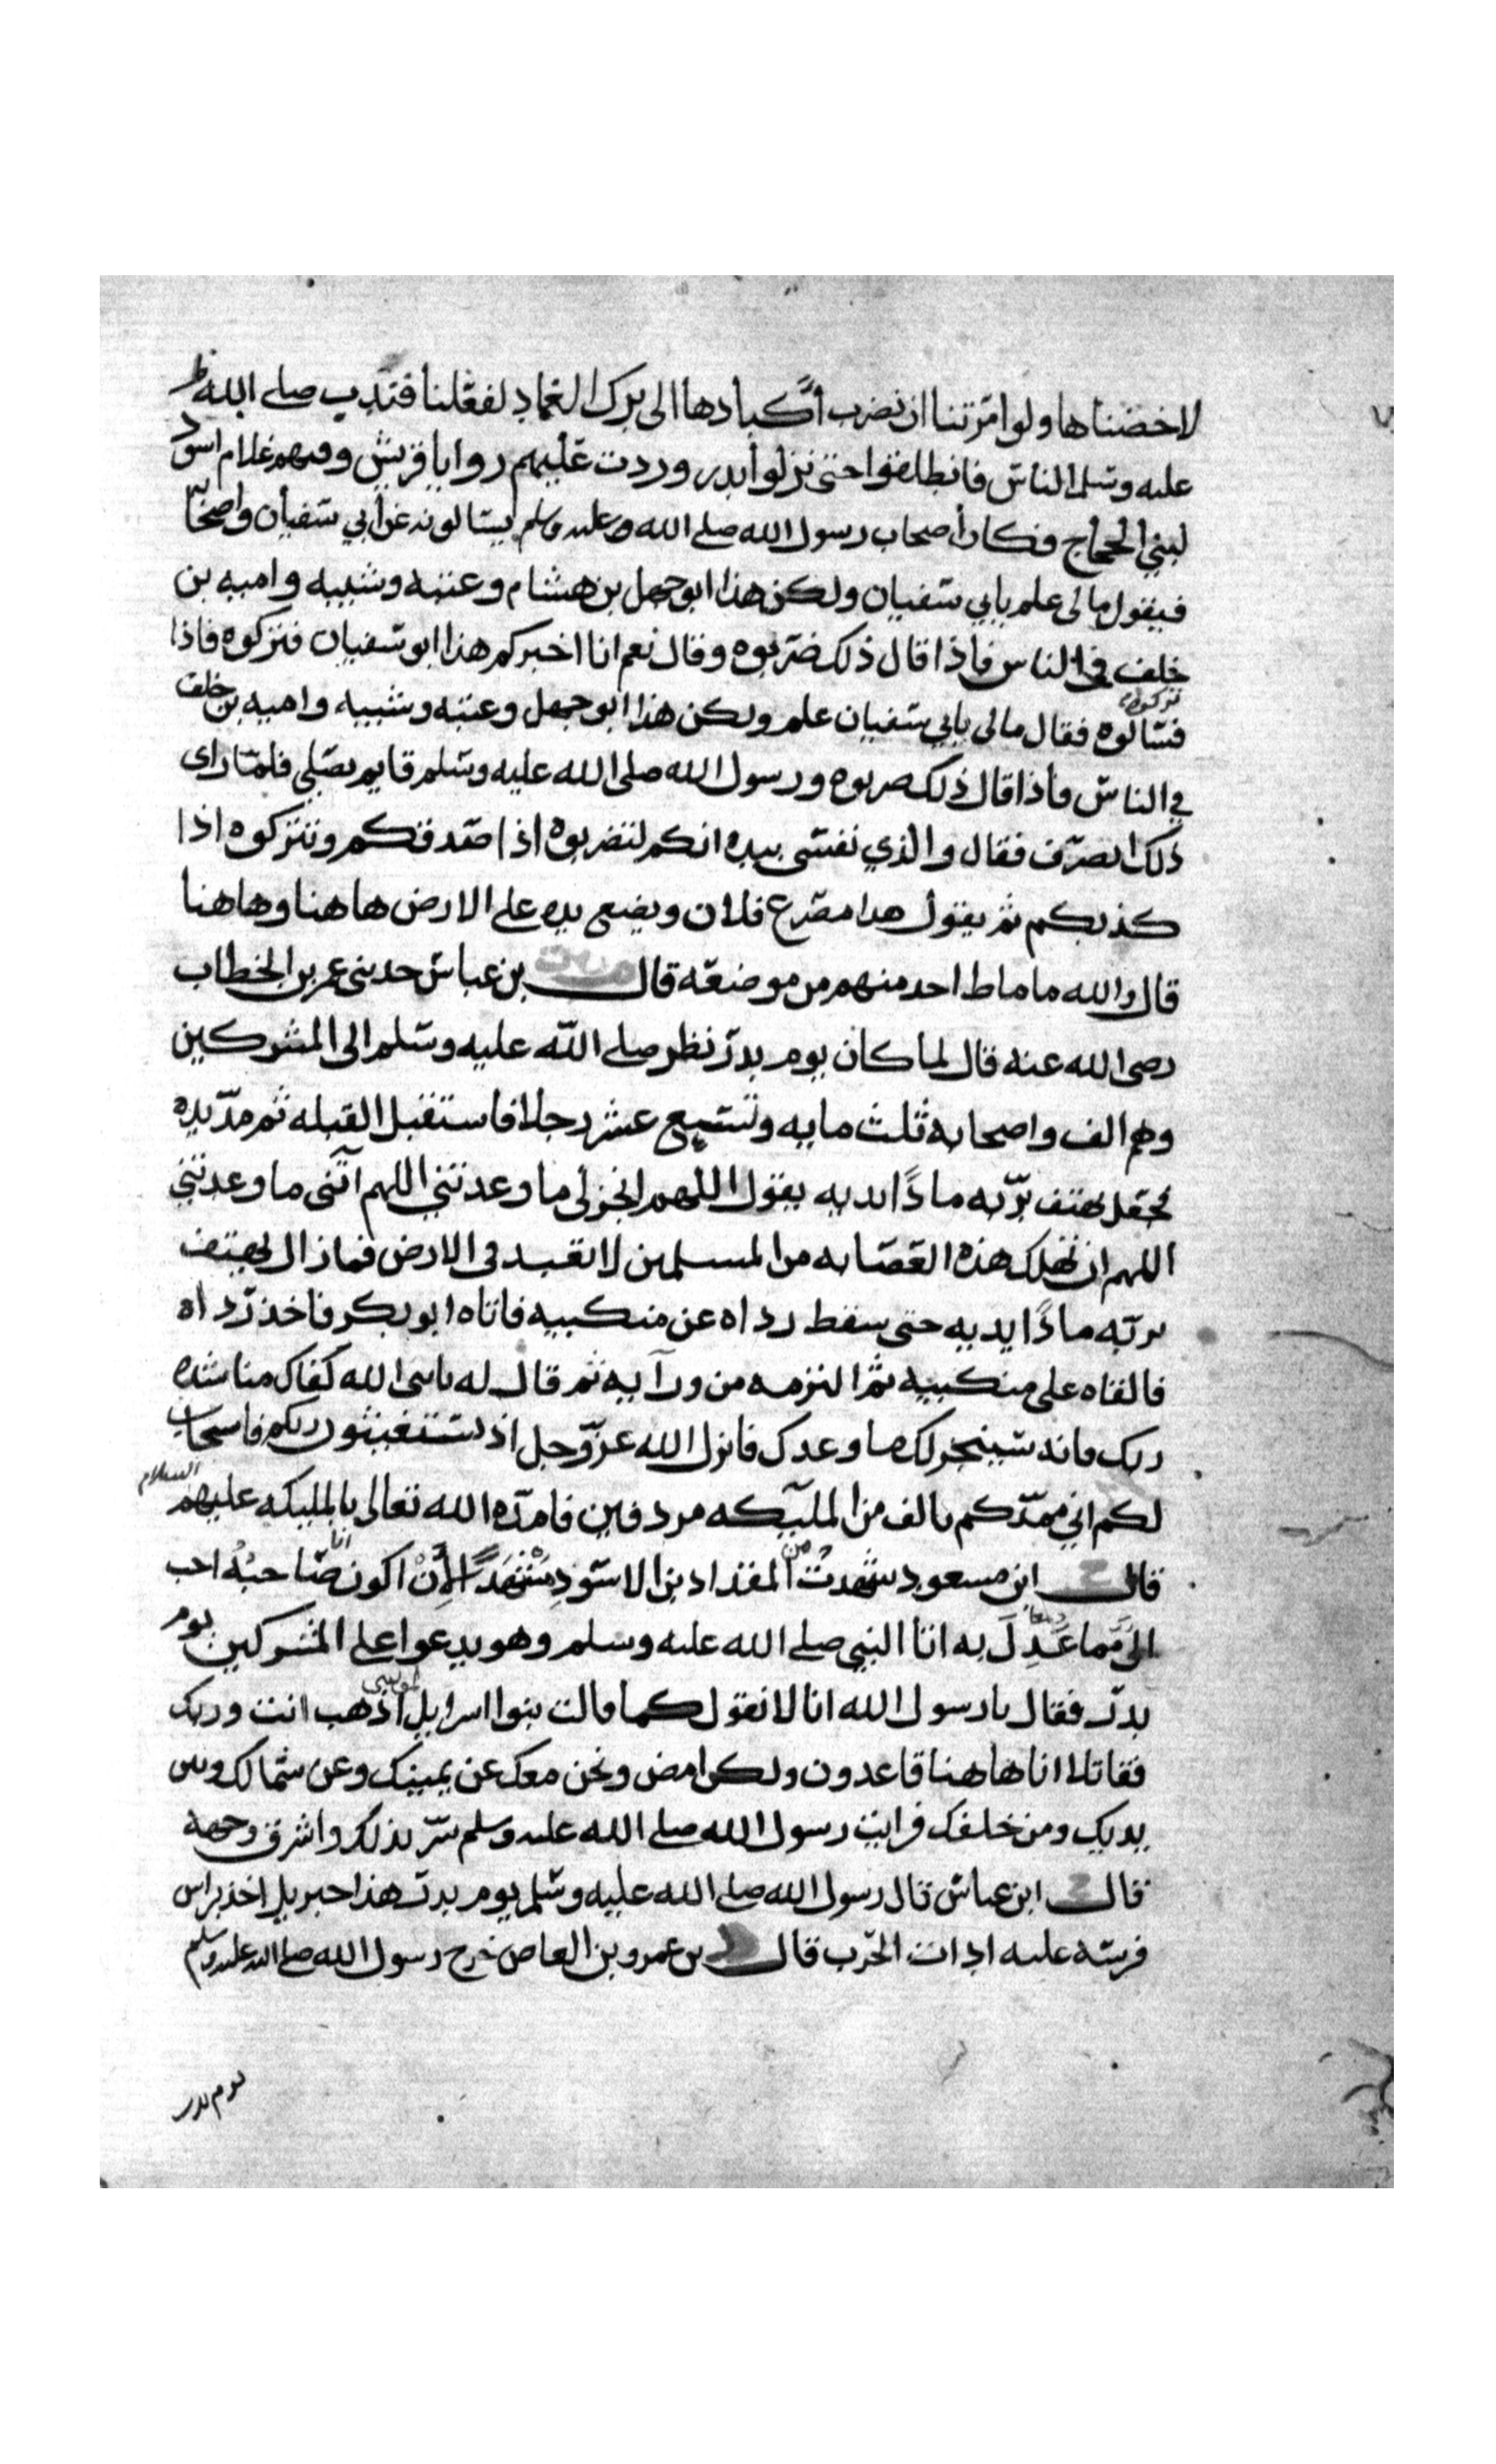 لاخضناها ولو امرتنا ان نضرب أكبادها الى برك الغماد لفعلنا فندب صلى الله
عليه وسلم الناس فانطلقوا حتى نزلوا بدر وردت عليهم روايا قريش وفيهم غلام اسود
لبني الحجاج فكان أصحاب رسول الله صلى الله عليه وسلم يسالونه عن أبي سفيان واصحابه
فيقول مالى علم بابي سفيان ولكن هذا ابو جهل بن هشام وعتبه وشيبه واميه بن
خلف في الناس فاذا قال ذلك ضربوه وقال نعم انا اخبركم هذا ابو سفيان فتركوه فاذا
تركوه
فسالوه فقال مالى بابي سفيان علم ولكن هذا ابو جهل وعتبه وشيبه واميه بن خلف
في الناس فاذا قال ذلك ضربوه ورسول الله صلى الله عليه وسلم قايم يصلي فلما راى
ذلك انصرف فقال والذي نفسى بيده انكم لتضربوه اذا صدقكم وتتركوه اذا
كذبكم ثم يقول هذا مصرع فلان ويضع يده على الارض هاهنا وهاهنا
قال والله ما ماط احد منهم من موضعه قال بن عباس حدثنى عمر بن الخطاب
رضى الله عنه قال لما كان يوم بدر نظر صلى الله عليه وسلم الى المشركين
وهم الف واصحابه ثلث مايه وتسع عشر رجلا فاستقبل القبله ثم مد يده
فجعل يهتف بربه مادًا يديه يقول اللهم انجز لى ما وعدتني اللهم آتنى ما وعدتني
اللهم ان تهلك هذه العصابه من المسلمين لا تعبد فى الارض فمازال يهتف
بربه مادًا يديه حتى سقط رداه عن منكبيه فاتاه ابو بكر فاخذ رداه
فالقاه على منكبيه ثم التزمه من ورآيه ثم قال له يا نبى الله كفاك مناشده
ربك فانه سينجز لك ما وعدك فانزل الله عز وجل اذ تستغيثون ربكم فاستجاب
لكم اني ممدكم بالف من المليكه مردفين فامده الله تعالى بالمليكه عليهم السلام
قال ابن مسعود شهدت من المقداد بن الاسود مَشْهَدًا لأَنْ اكون انا صاحبُهُ احب
الىَّ مما عُدِلَ به اتا النبي صلى الله عليه وسلم وهو يدعوا على المشركين يوم
بدر فقال يا رسول الله انا لا نقول كما قالت بنوا اسرايل لموسى اذهب انت وربك
فقاتلا انا هاهنا قاعدون ولكن امض ونحن معك عن يمينك وعن شمالك وبين
يديك ومن خلفك فرايت رسول الله صلى الله عليه وسلم سر بذلك واشرق وجهه
قال ابن عباس قال رسول الله صلى الله عليه وسلم يوم بدر هذا جبريل اخذ براس
فرسه عليه ادات الحرب قال بن عمرو بن العاص خرج رسول الله صلى الله عليه وسلم
يوم بدر